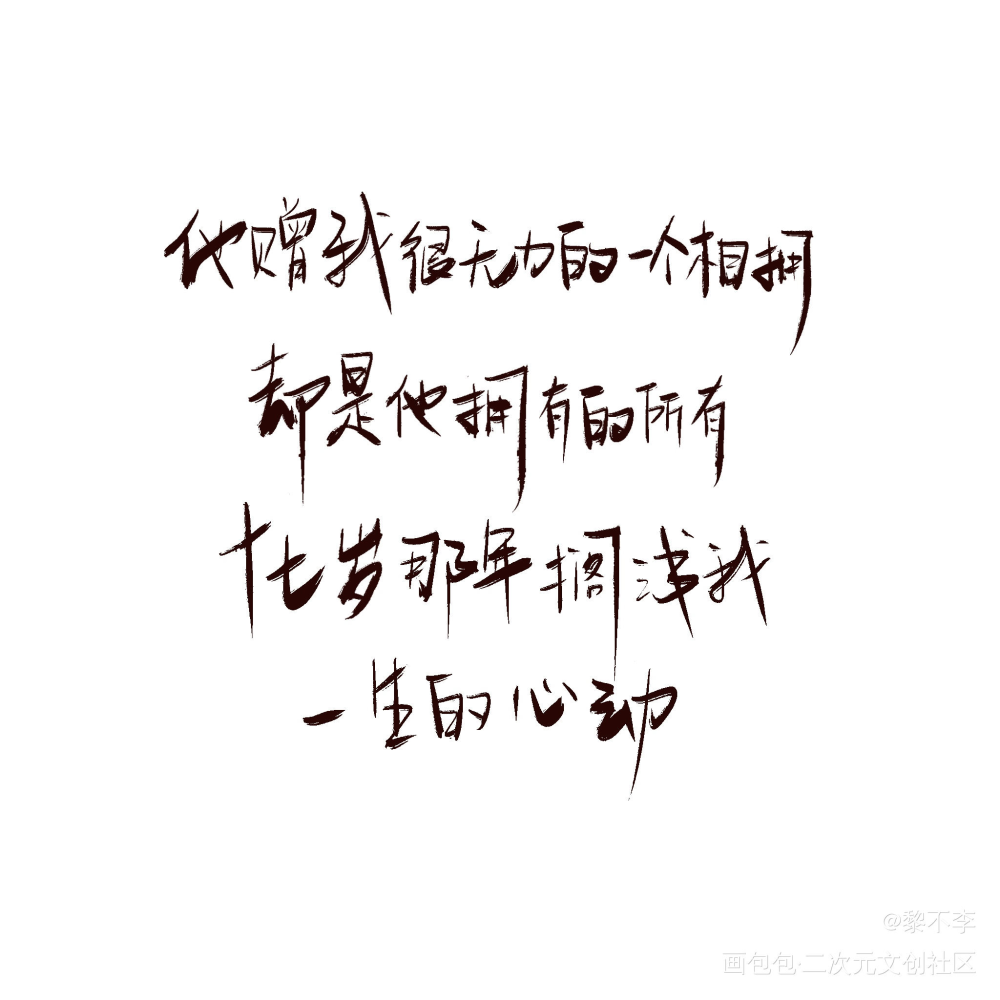 他赠我很无力的一个相拥
却是他拥有的所有
十七岁那年搁浅我
一生的心动
@黎不李
画包包·二次元文创社区